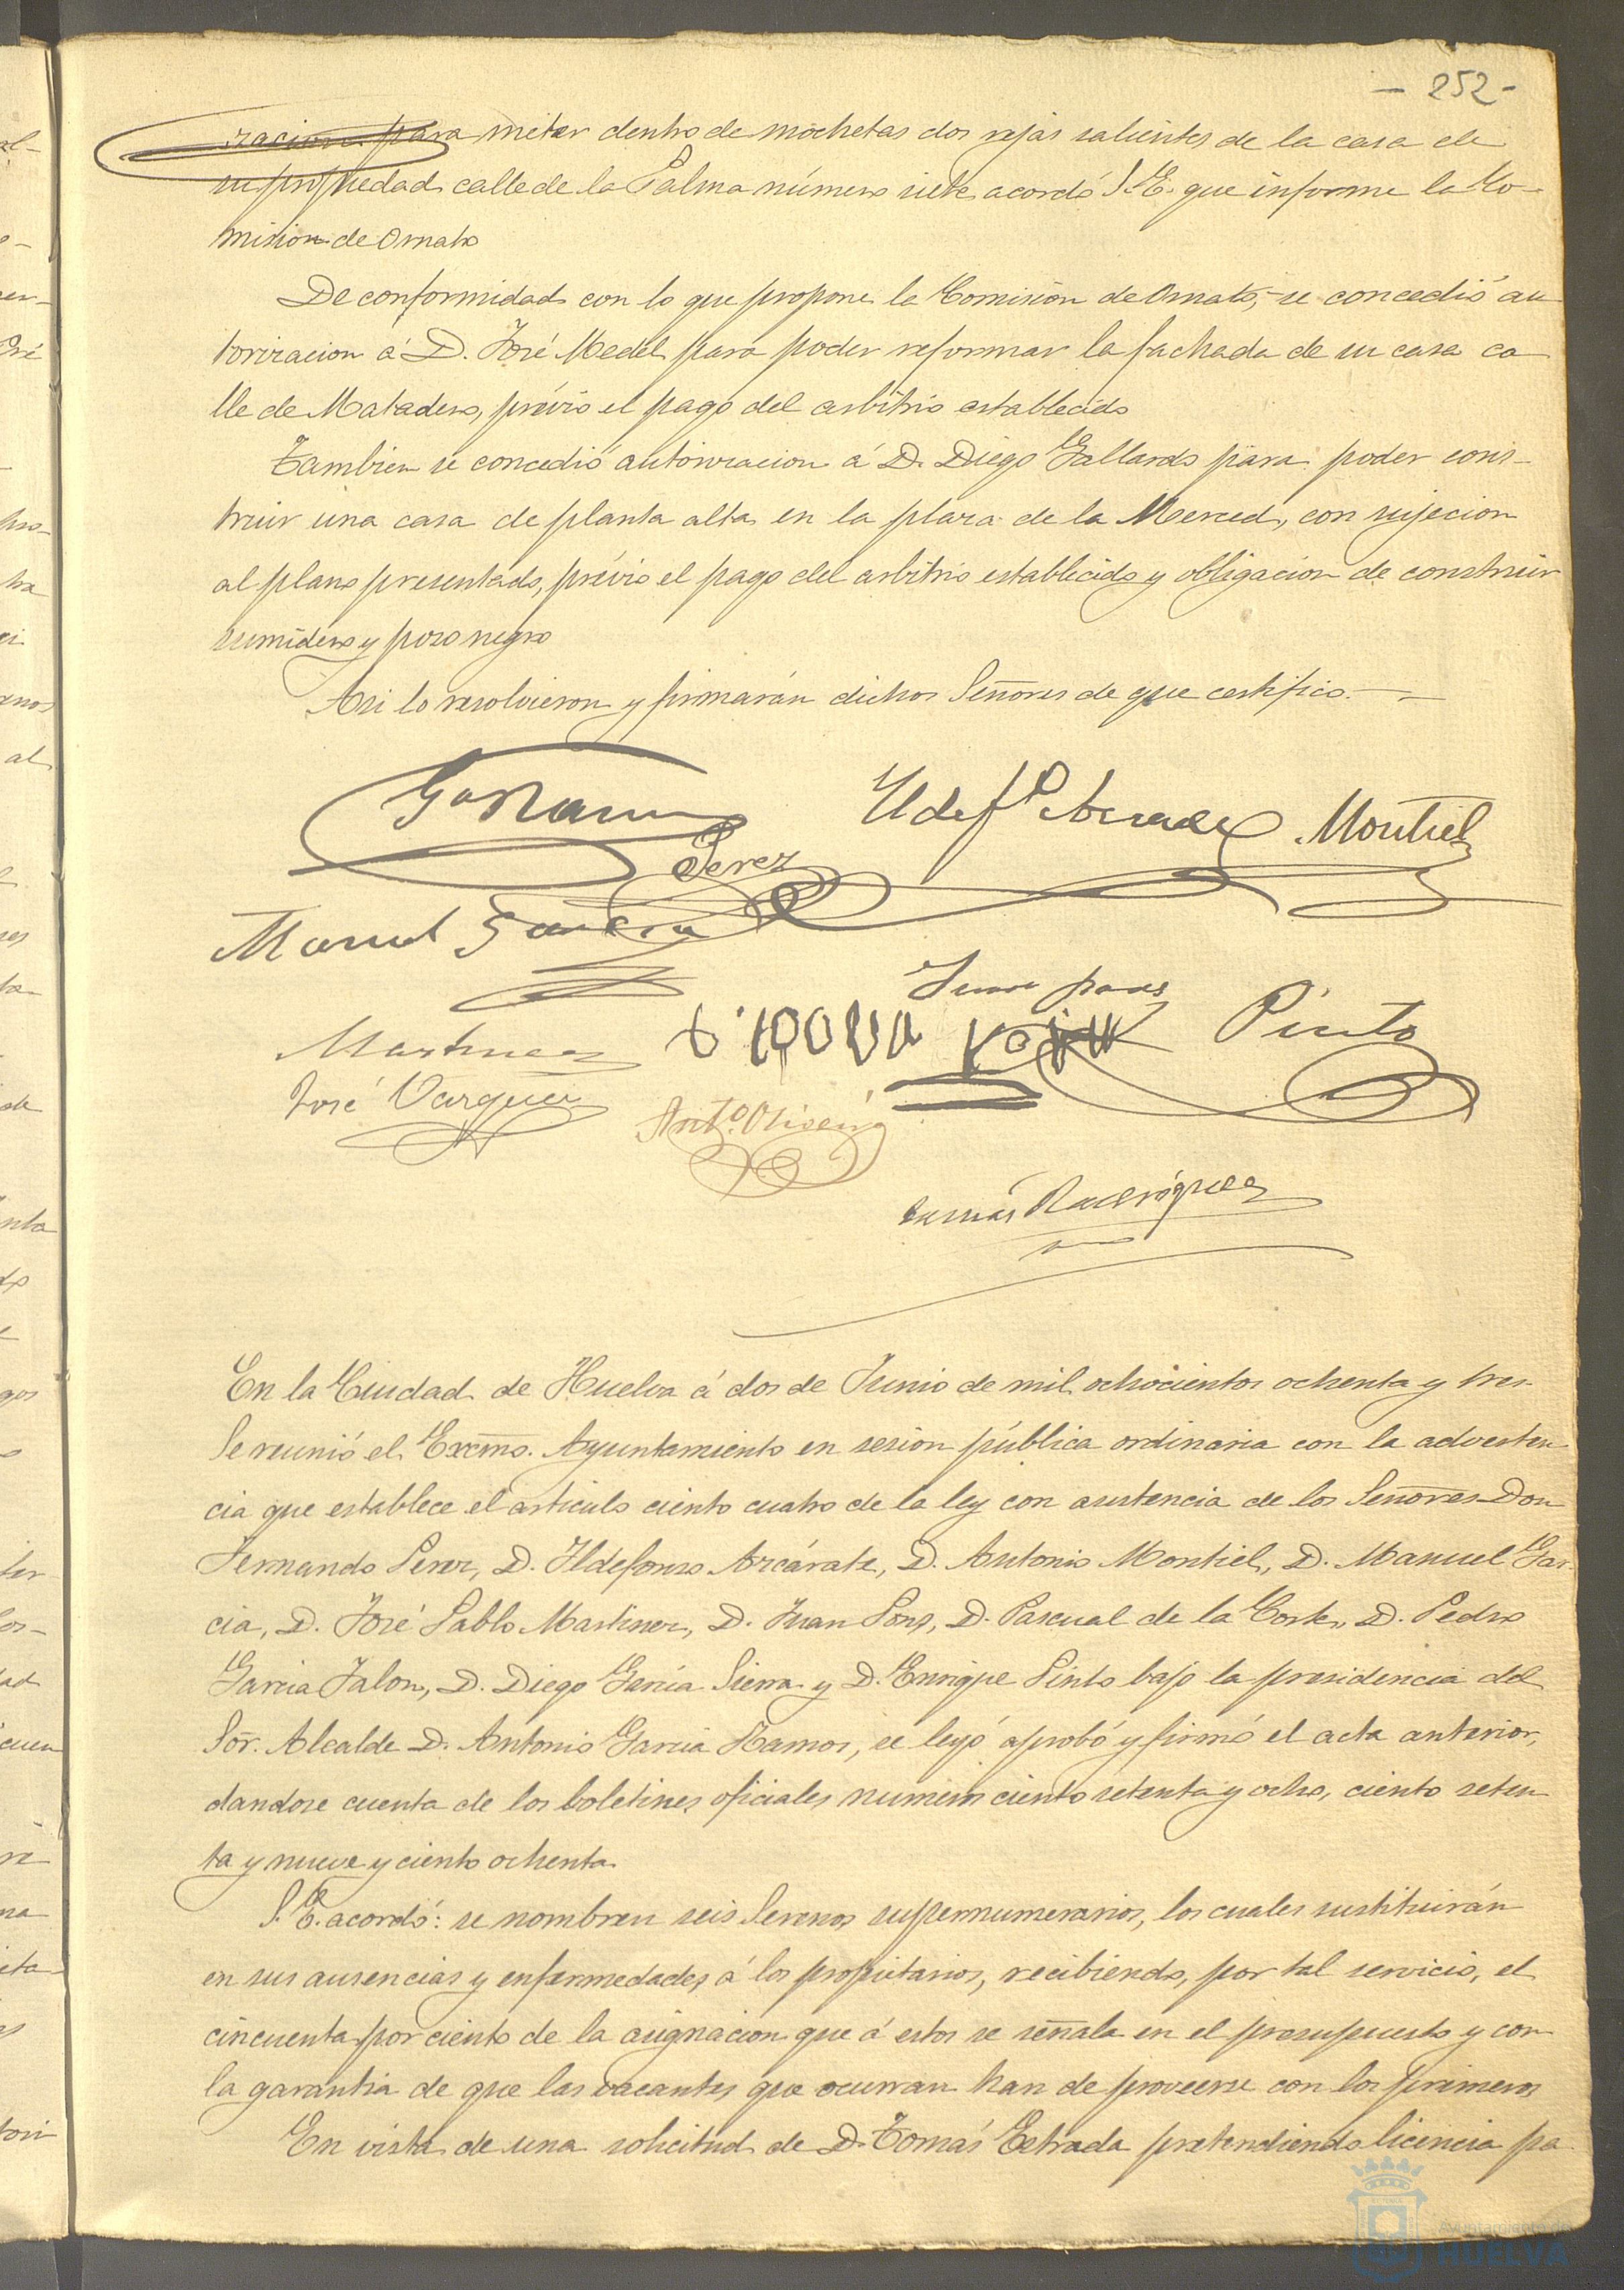 - 252 -
racion para meter dentro de mochetas dos rejas salientes de la casa de
su propiedad calle de la Palma número siete acordó S.E. que informe la Co-
mision de Ornato
De conformidad con lo que propone la Comision de Ornato, se concedió au
torizacion á D. José Medel para poder reformar la fachada de su casa ca
lle de Matadero, prévio el pago del arbitrio establecido
Tambien se concedió autorizacion á D. Diego Gallardo para poder cons-
truir una casa de planta alta en la plaza de la Merced, con sujecion
al plano presentado, prévio el pago del arbitrio establecido y obligacion de construir
sumidero y pozo negro
Asi lo resolvieron y firmarán dichos Señores de que certifico.
Ga Ramos
Ildef.º Azcarate Montiel
Perez
Manuel Garcia
Juan pons
Martinez
Pinto
José Vazquez
Antº. Oliveira
Tomás Rodriguez
En la Ciudad de Huelva á dos de Junio de mil ochocientos ochenta y tres
Se reunió el Excmo. Ayuntamiento en sesion pública ordinaria con la adverten
cia que establece el articulo ciento cuatro de la ley con asistencia de los Señores Don
Fernando Perez, D. Ildefonso Azcárate, D. Antonio Montiel, D. Manuel Gar-
cia, D. José Pablo Martinez, D. Juan Pons, D. Pascual de la Corte, D. Pedro
Garcia Jalon, D. Diego Garcia Sierra y D. Enrique Pinto bajo la presidencia del
Sör. Alcalde D. Antonio Garcia Ramos, se leyó aprobó y firmó el acta anterior,
dandose cuenta de los boletines oficiales numeros ciento setenta y ocho, ciento seten
ta y nueve y ciento ochenta
S.E. acordó: se nombren seis Serenos supernumerarios, los cuales sustituirán
en sus ausencias y enfermedades á los propietarios, recibiendo, por tal servicio, el
cincuenta por ciento de la asignacion que á estos se señala en el presupuesto y con
la garantia de que las vacantes que ocurran han de proveerse con los primeros
En vista de una solicitud de D. Tomás Estrada pretendiendo licencia pa
Ayuntamiento de
HUELVA